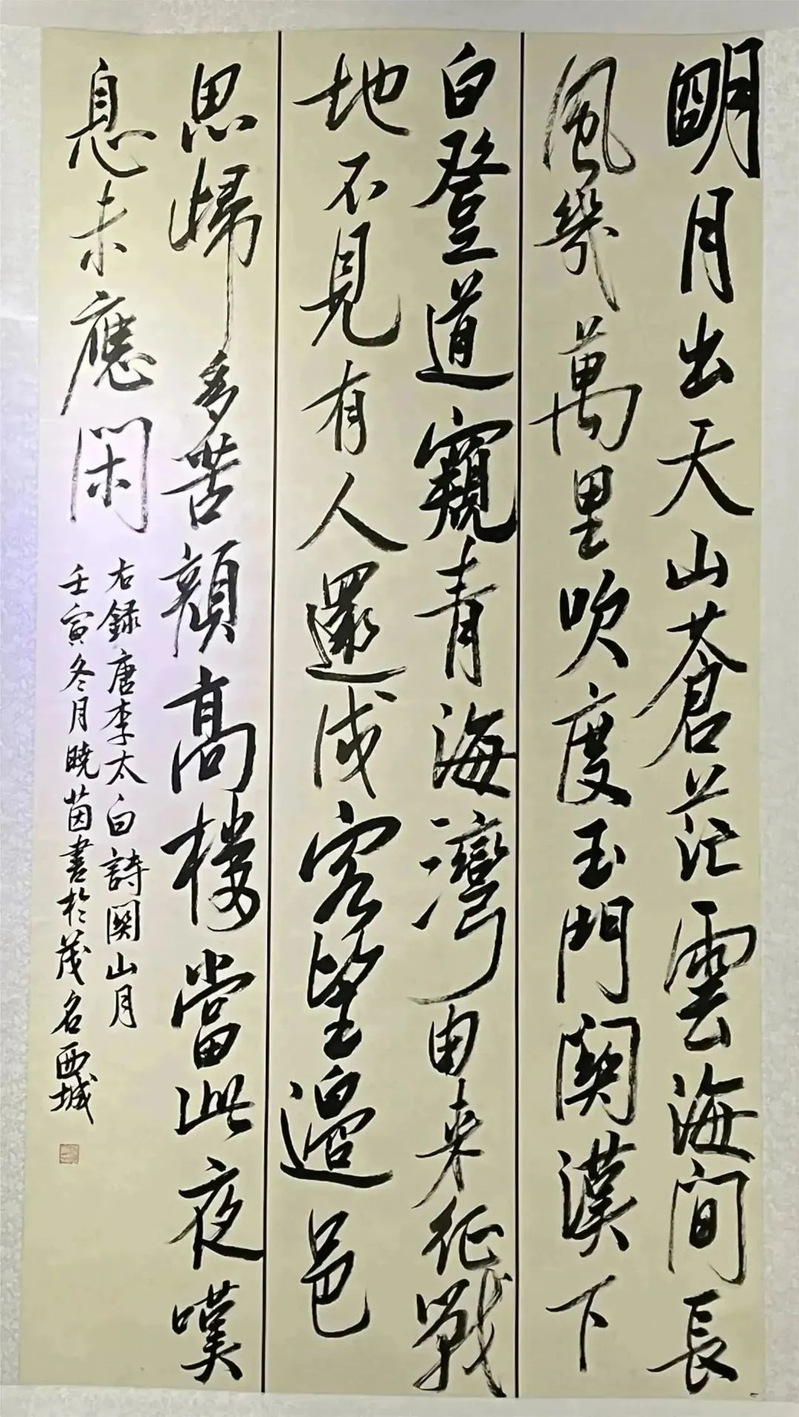 明月出天山蒼茫雲海間長
風幾萬里吹度玉門關漢下
白登道窺青海灣由来征戰
地不見有人還戍客望邊邑
思歸多苦顏高樓當此夜嘆
息未應閑
右録唐李太白詩關山月
壬寅冬月曉茵書於茂名西城